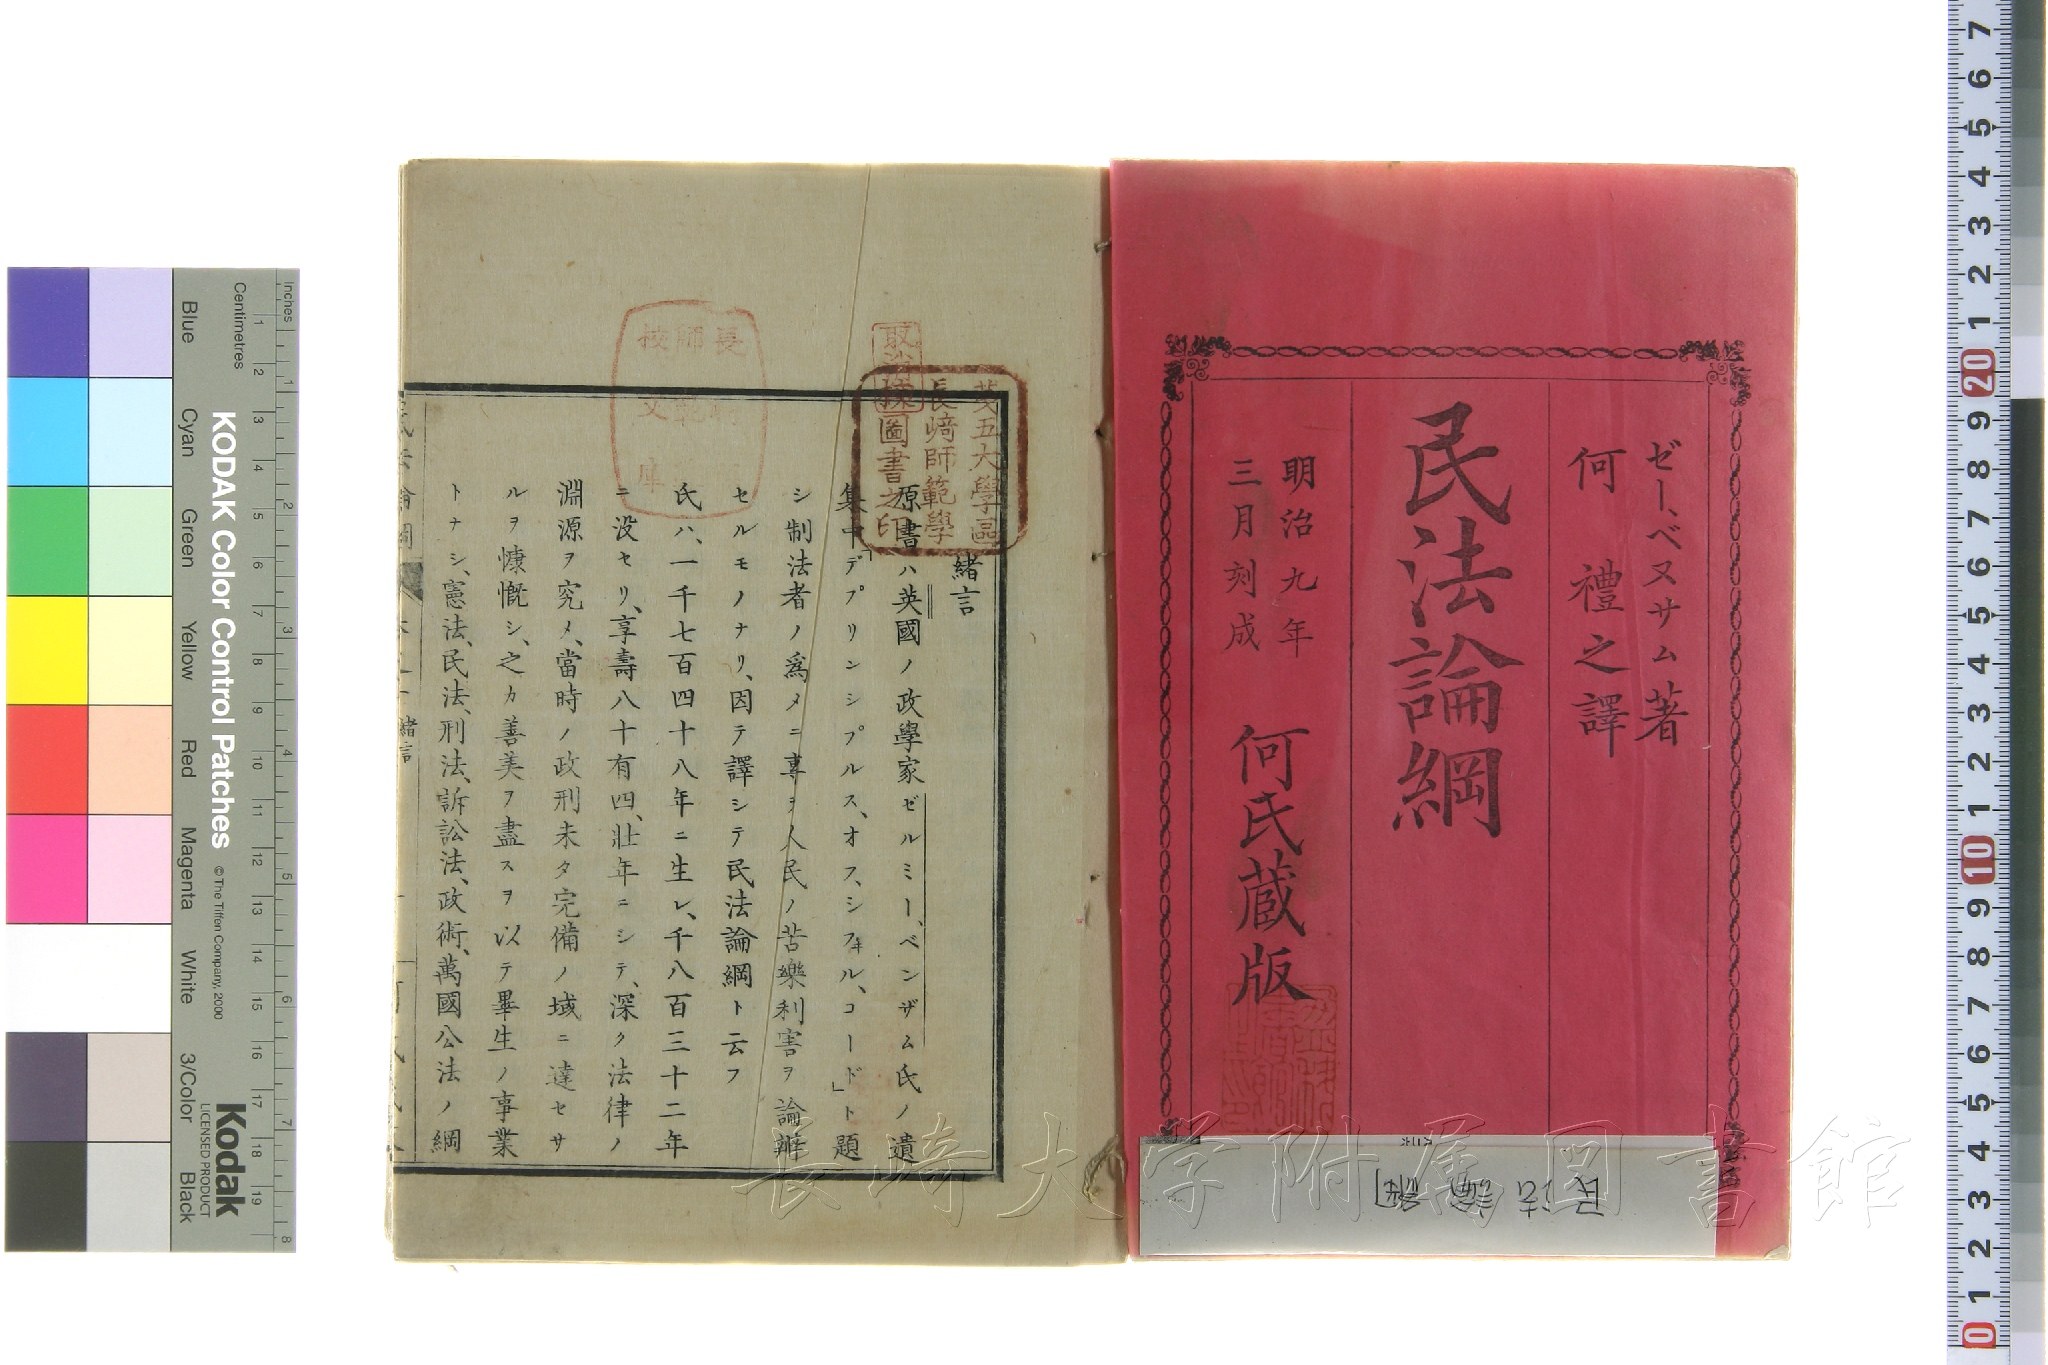 ゼー、ベヌサム著
何禮之譯
民法論綱
明治九年
三月刻成
何氏蔵版
民法論綱
緒言
原書ハ英國ノ政學家ゼルミー、ベンザム氏ノ遺
集中「デプリンシプルス、オフ、シフ井ル、コード」ト題
シ制法者ノ爲メニ專ヲ人民ノ苦樂利害ヲ論辨
セルモノナリ、因テ譯シテ民法論綱ト云フ
氏ハ、一千七百四十八年ニ生レ、千八百三十二年
ニ没セリ、享壽八十有四、壯年ニシテ、深ク法律ノ
淵源ヲ究メ、當時ノ政刑未タ完備ノ域ニ達セサ
ルヲ慷慨シ、之カ善美ヲ盡スヲ以テ畢生ノ事業
トナシ、憲法、民法、刑法、訴訟法、政術、萬國公法ノ綱
緒言
第五大學區
長﨑師範學
圖書之印
長﨑大学附属図書館
KODAK Color Control Patches
© The Tiffen Company, 2000
Kodak
LICENSED PRODUCT
Inches
Centimetres
1 2 3 4 5 6 7 8 9 10 11 12 13 14 15 16 17 18 19
1 2 3 4 5 6 7 8
Blue
Cyan
Green
Yellow
Red
Magenta
White
3/Color
Black
7 6 5 4 3 2 1 20 9 8 7 6 5 4 3 2 1 10 9 8 7 6 5 4 3 2 1 0